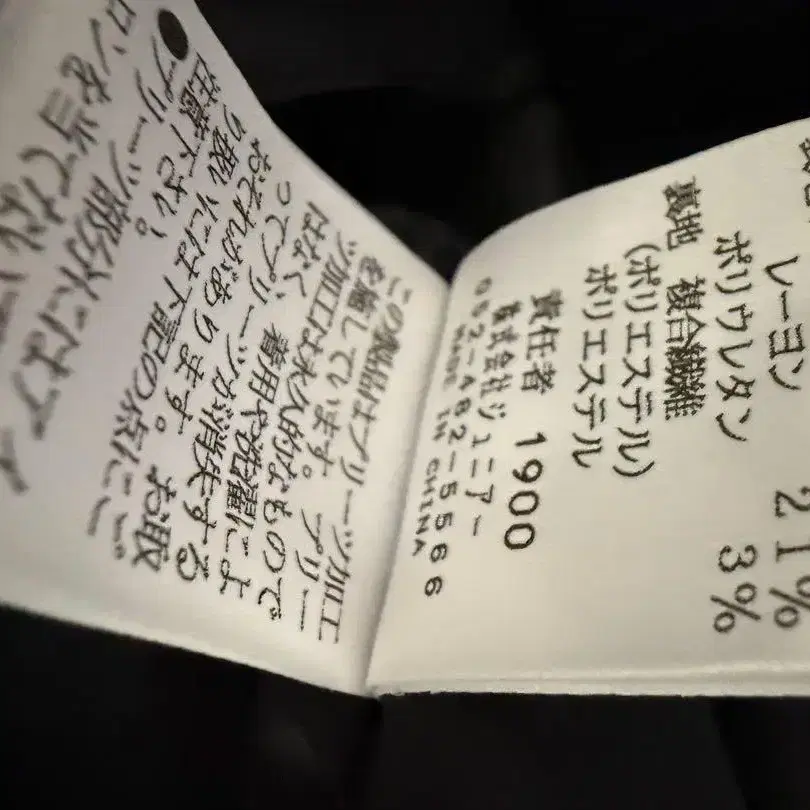 レーヨン 21%
ポリウレタン 3%
裏地 複合繊維
(ポリエステル)
ポリエステル
責任者 1900
株式会社ジュニアー
052-482-5566
MADE IN CHINA
この製品はプリーツ加工
を施しています。プリー
ツ加工は永久的なもので
はなく、着用や洗濯によ
ってプリーツが消失する
おそれがあります。お取
り扱いには下記の点にご
注意下さい。
●プリーツ部分にはアイ
ロンを当てない